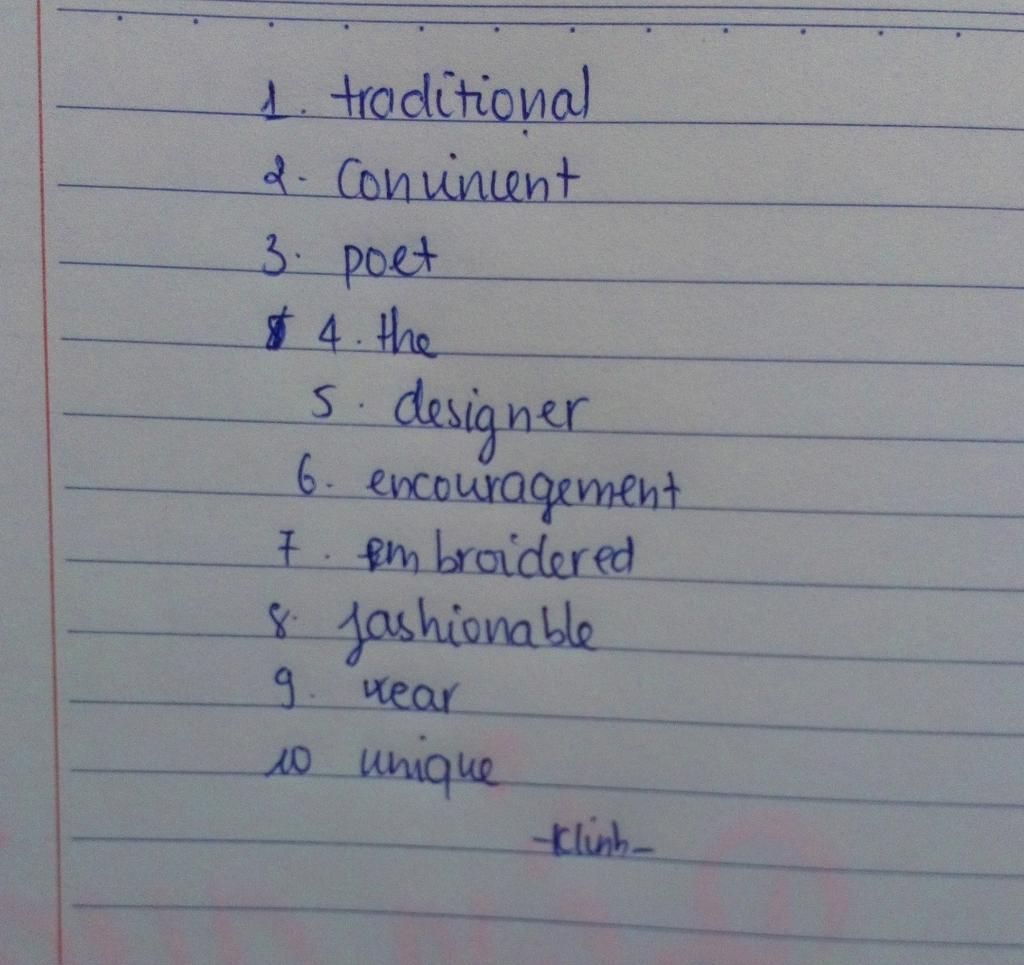 1. traditional
2. Convinient
3. poet
4. the
5. designer
6. encouragement
7. embroidered
8. fashionable
9. wear
10 unique
-Klinh-